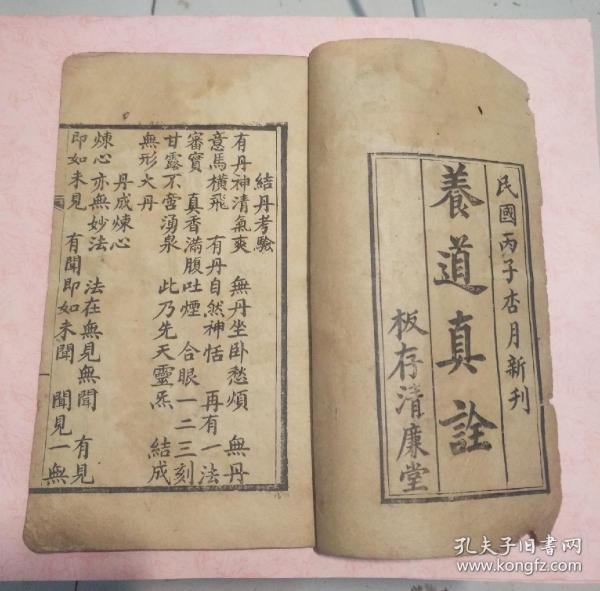 民國丙子杏月新刊
養道真詮
板存清廉堂
結丹考驗
有丹神清氣爽　無丹坐卧愁煩　無丹
意馬橫飛　有丹自然神恬　再有一法
審實　真香滿腹吐煙　合眼一二三刻
甘露不啻湧泉　此乃先天靈炁　結成
無形大丹
丹成煉心
煉心亦無妙法　法在無見無聞　有見
即如未見　有聞即如未聞　聞見一無
孔夫子旧书网
www.kongfz.com